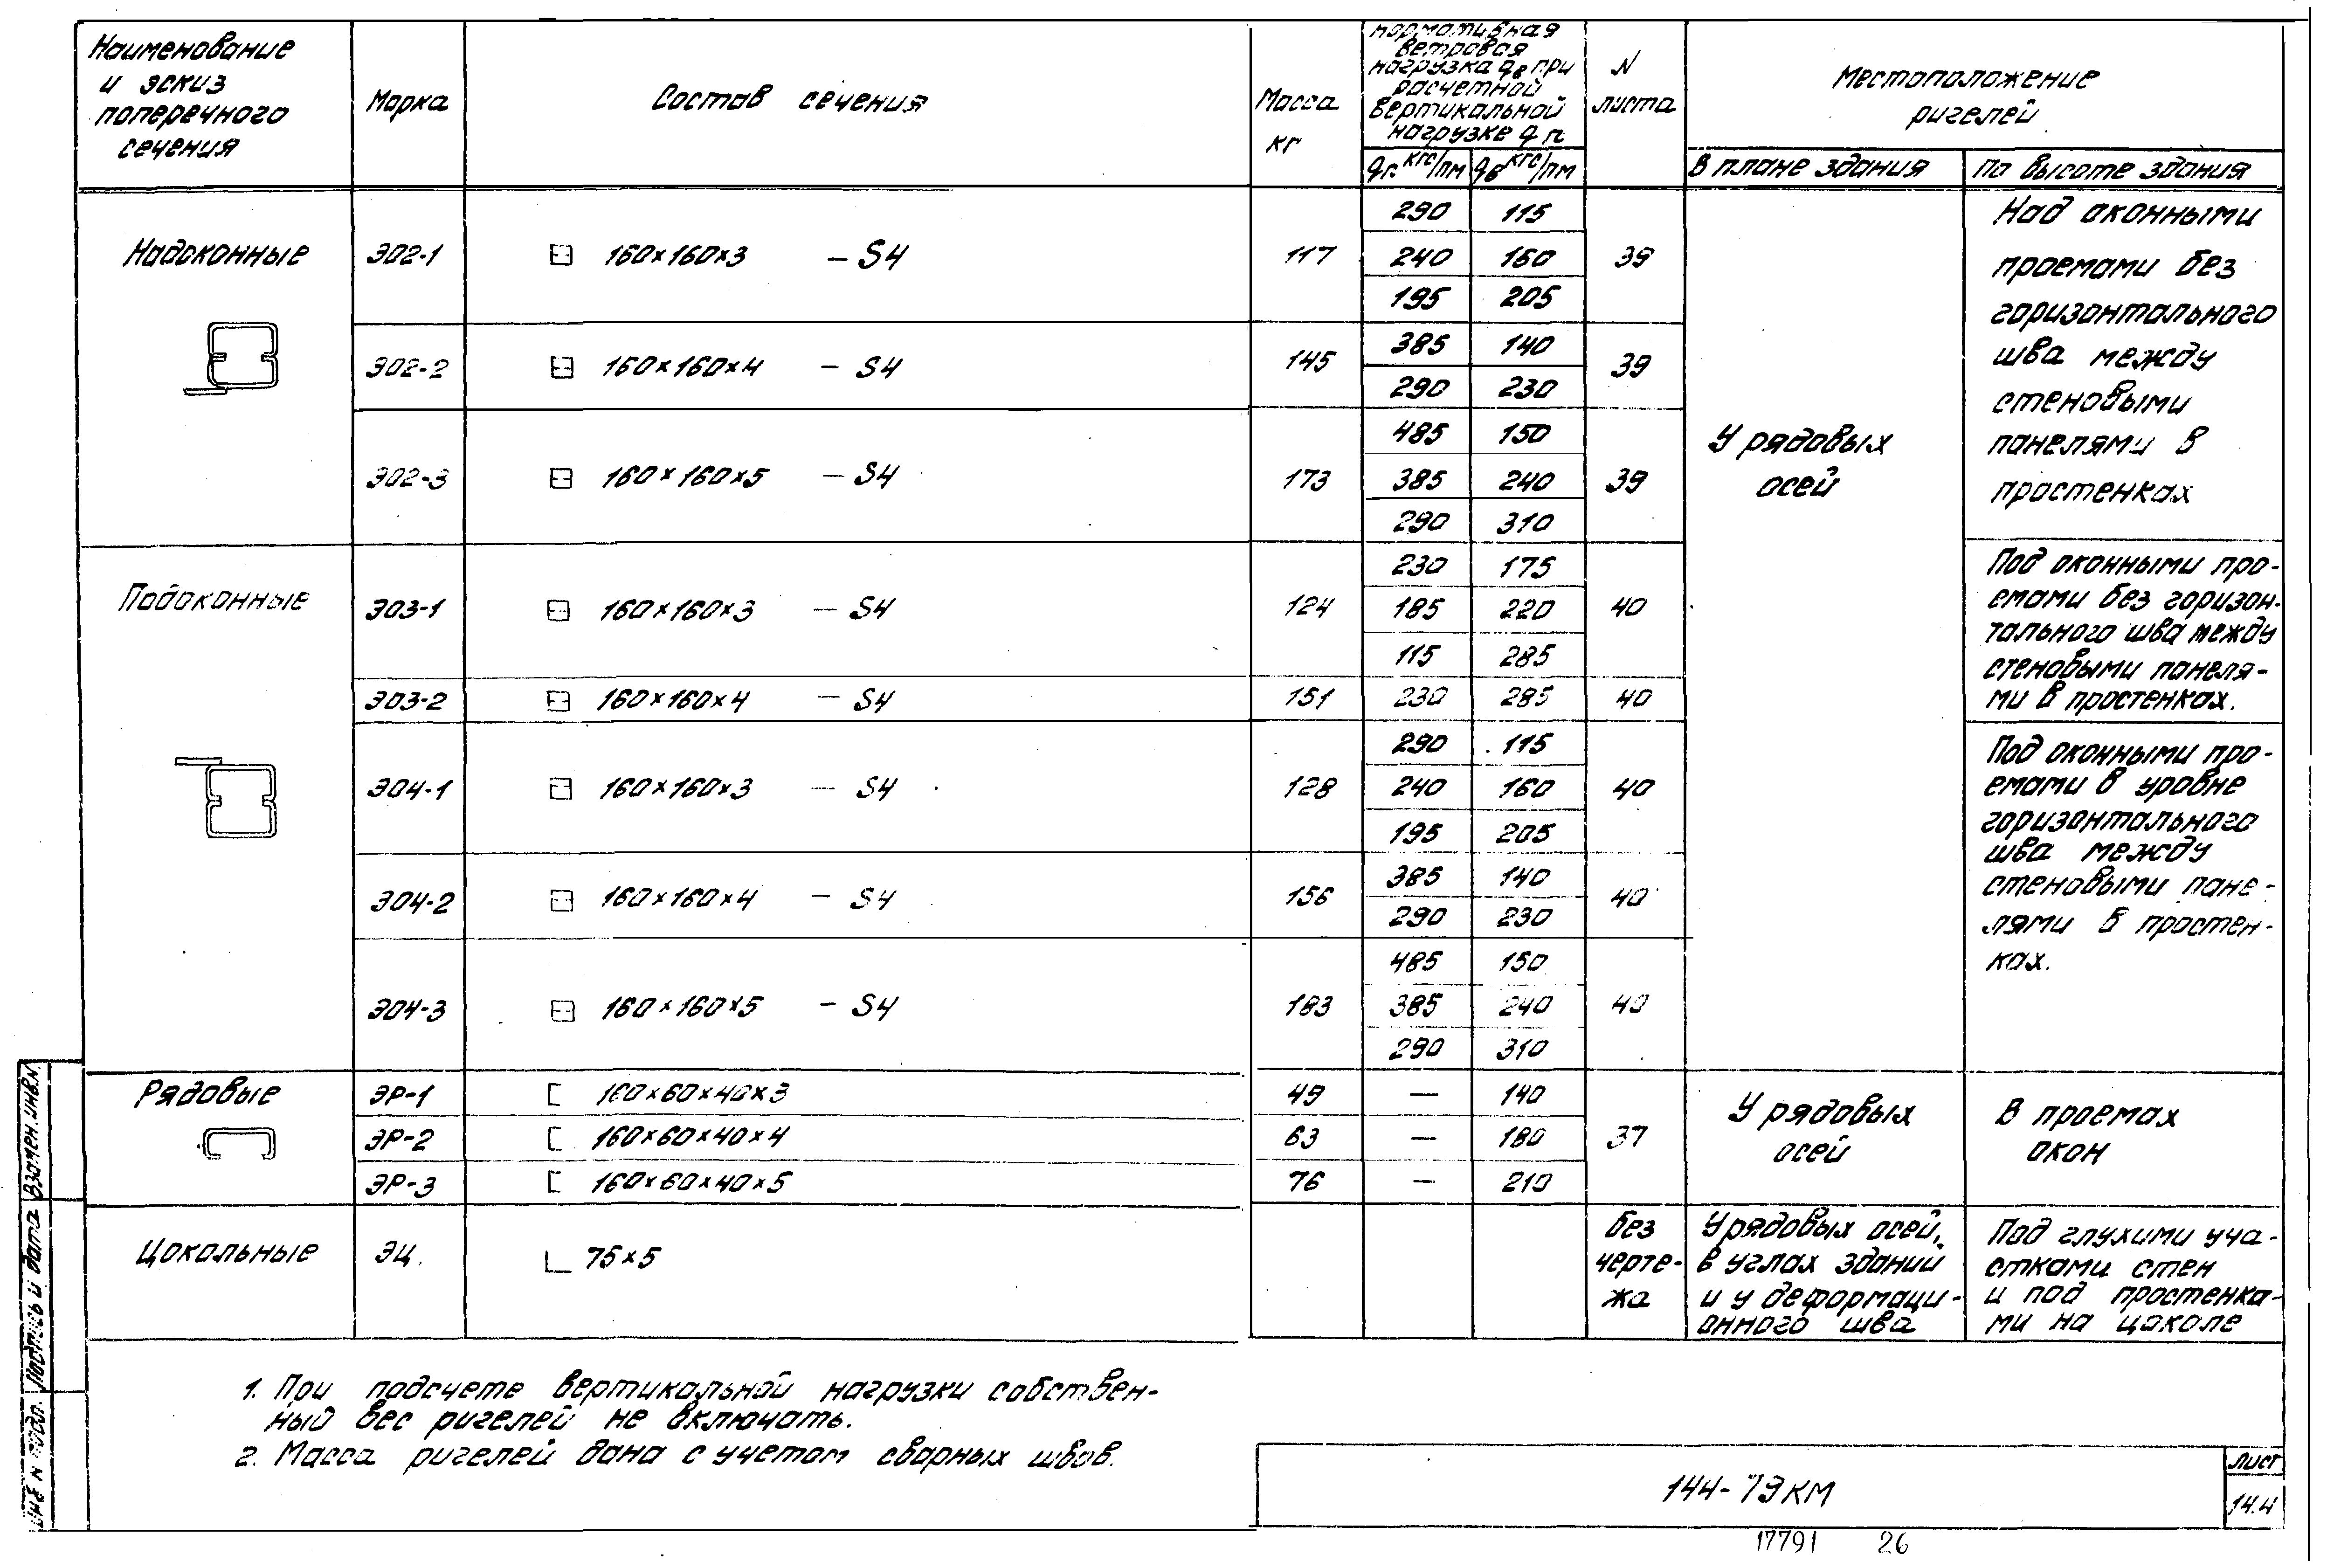 Наименование
и эскиз
поперечного
сечения
Марка
Состав сечения
Масса
кг
нормативная
ветровая
нагрузка qв при
расчетной
вертикальной
нагрузке qп
qг. кгс/пм
qв кгс/пм
N
листа
Местоположение
ригелей
в плане здания
по высоте здания
Надоконные
ЭО2-1 160×160×3 – S4 117 39
290 115
240 160
195 205
ЭО2-2 160×160×4 – S4 145 39
385 140
290 230
ЭО2-3 160×160×5 – S4 173 39
485 150
385 240
290 310
У рядовых
осей
Над оконными
проемами без
горизонтального
шва между
стеновыми
панелями в
простенках
Подоконные
ЭО3-1 160×160×3 – S4 124 40
230 175
185 220
115 285
ЭО3-2 160×160×4 – S4 151 230 285 40
Под оконными про-
емами без горизон-
тального шва между
стеновыми панеля-
ми в простенках.
ЭО4-1 160×160×3 – S4 128 40
290 115
240 160
195 205
ЭО4-2 160×160×4 – S4 156 40
385 140
290 230
ЭО4-3 160×160×5 – S4 183 40
485 150
385 240
290 310
Под оконными про-
емами в уровне
горизонтального
шва между
стеновыми пане-
лями в простен-
ках.
Рядовые
ЭР-1 160×60×40×3 49 — 140
ЭР-2 160×60×40×4 63 — 180 37
ЭР-3 160×60×40×5 76 — 210
У рядовых
осей
В проемах
окон
Цокольные ЭЦ. 75×5
без
черте-
жа
У рядовых осей,
в углах зданий
и у деформаци-
онного шва
Под глухими уча-
стками стен
и под простенка-
ми на цоколе
1. При подсчете вертикальной нагрузки собствен-
ный вес ригелей не включать.
2. Масса ригелей дана с учетом сварных швов.
144-79КМ
лист
14.4
17791 26
Взамен. инв.N
Подпись и дата
Инв N подл.